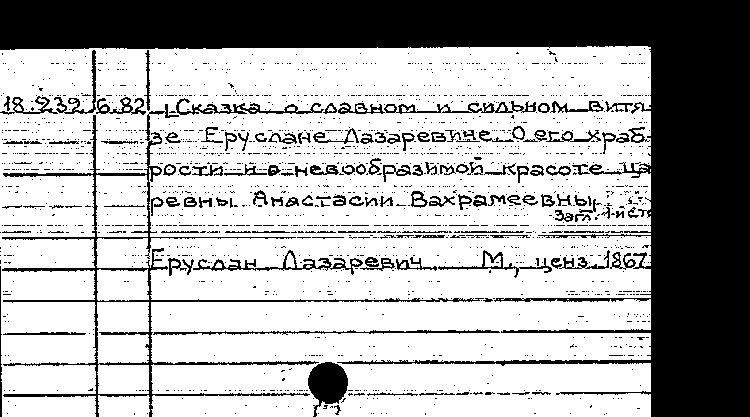 18.239 6.82 [Сказка о славном и сильном витя-
зе Еруслане Лазаревиче. О его храб-
рости и о невообразимой красоте ца-
ревны Анастасии Вахрамеевны]
Загл. 1-й стр
Еруслан Лазаревич. М., ценз. 1867